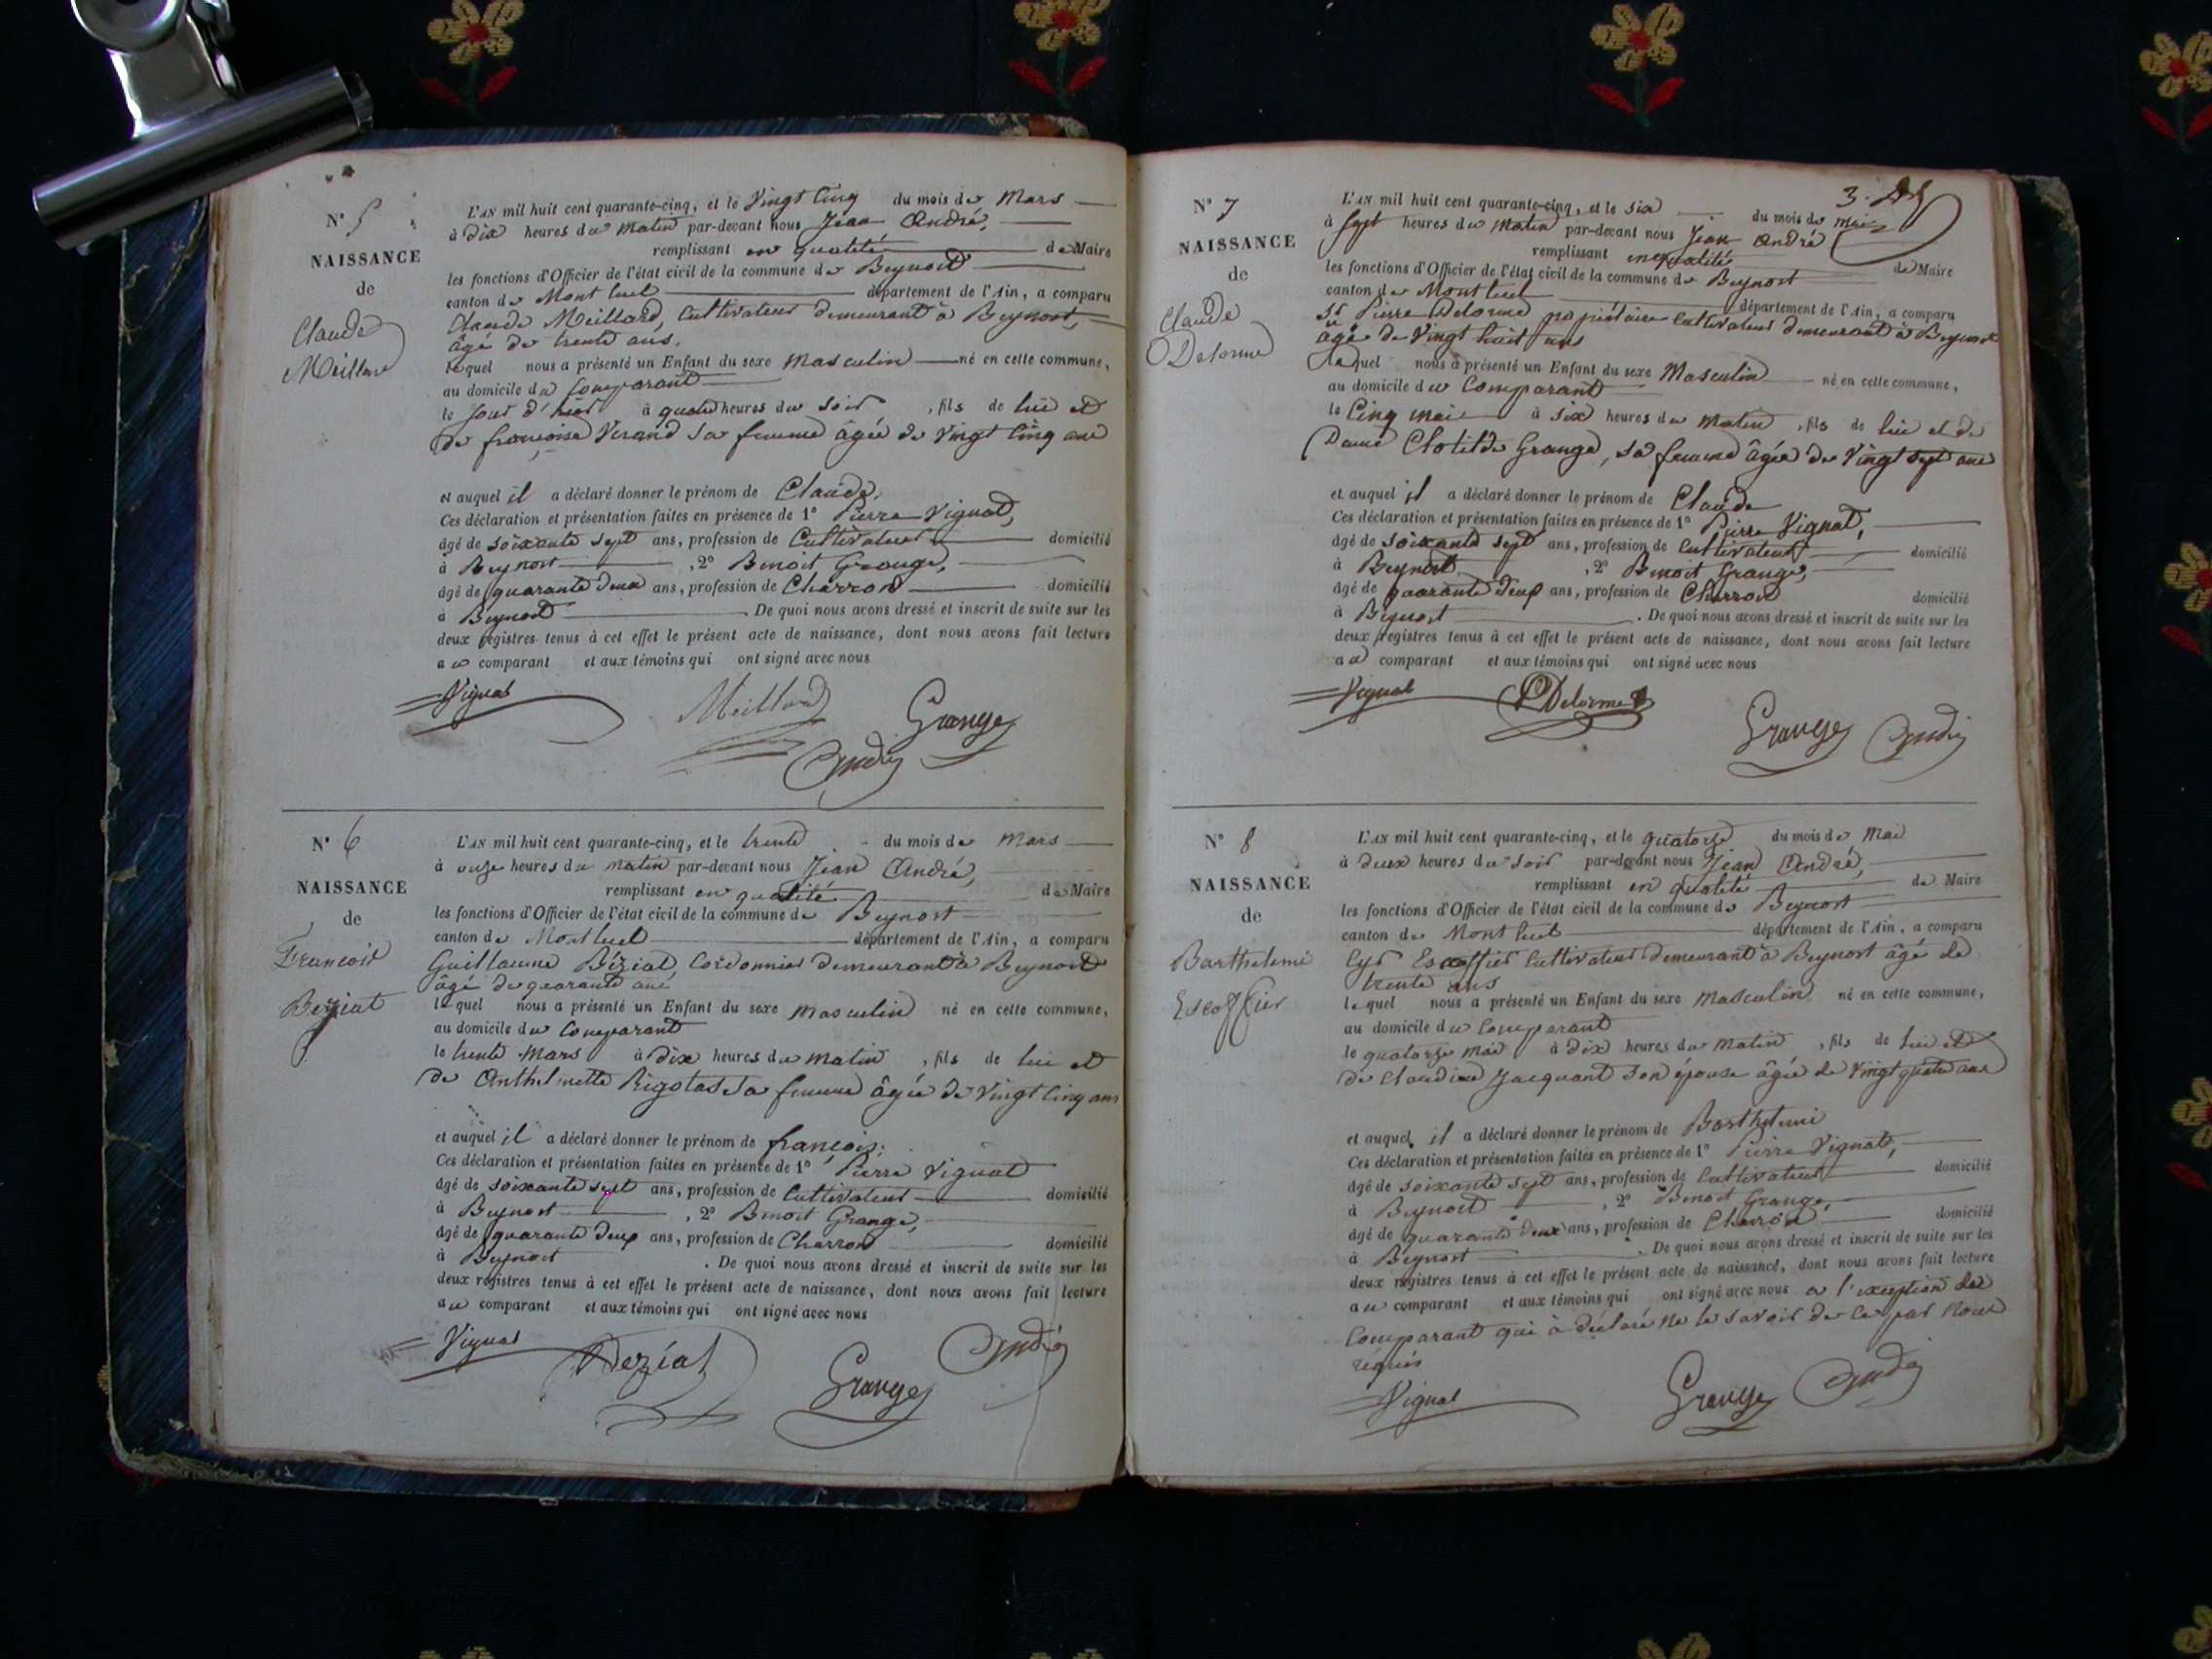 N° 5
NAISSANCE
de
Claude
Meillard
L'AN mil huit cent quarante-cinq, et le Vingt Cinq du mois de Mars
à dix heures du matin par-devant nous Jean André,
remplissant en qualité de Maire
les fonctions d'Officier de l'état civil de la commune de Beynost
canton de Montluel département de l'Ain, a comparu
Claude Meillard, Cultivateur demeurant à Beynost,
âgé de trente ans.
lequel nous a présenté un Enfant du sexe Masculin né en cette commune,
au domicile du Comparant
le jour d'hier à quatre heures du soir, fils de lui et
de françoise Verand sa femme âgée de Vingt Cinq ans
et auquel il a déclaré donner le prénom de Claude,
Ces déclaration et présentation faites en présence de 1° Pierre Vignat,
âgé de soixante sept ans, profession de Cultivateur domicilié
à Beynost, 2° Benoit Grange,
âgé de quarante deux ans, profession de Charron domicilié
à Beynost. De quoi nous avons dressé et inscrit de suite sur les
deux registres tenus à cet effet le présent acte de naissance, dont nous avons fait lecture
au comparant et aux témoins qui ont signé avec nous
Vignat Meillard Grange
André
N° 6
NAISSANCE
de
François
Beziat
L'AN mil huit cent quarante-cinq, et le trente du mois de Mars
à onze heures du matin par-devant nous Jean André,
remplissant en qualité de Maire
les fonctions d'Officier de l'état civil de la commune de Beynost
canton de Montluel département de l'Ain, a comparu
Guillaume Béziat, Cordonnier demeurant à Beynost
âgé de quarante ans
lequel nous a présenté un Enfant du sexe masculin né en cette commune,
au domicile du Comparant
le trente Mars à dix heures du matin, fils de lui et
de Anthelmette Rigotas sa femme âgée de Vingt Cinq ans
et auquel il a déclaré donner le prénom de françois;
Ces déclaration et présentation faites en présence de 1° Pierre Vignat
âgé de soixante sept ans, profession de Cultivateur domicilié
à Beynost, 2° Benoit Grange,
âgé de quarante deux ans, profession de Charron domicilié
à Beynost. De quoi nous avons dressé et inscrit de suite sur les
deux registres tenus à cet effet le présent acte de naissance, dont nous avons fait lecture
au comparant et aux témoins qui ont signé avec nous
Vignat Beziat Grange André
3.
N° 7
NAISSANCE
de
Claude
Delorme
L'AN mil huit cent quarante-cinq, et le six du mois de mai
à sept heures du matin par-devant nous Jean André
remplissant en qualité de Maire
les fonctions d'Officier de l'état civil de la commune de Beynost
canton de Montluel département de l'Ain, a comparu
Sr Pierre Delorme propriétaire Cultivateur demeurant à Beynost
âgé de Vingt huit ans
lequel nous a présenté un Enfant du sexe Masculin né en cette commune,
au domicile du Comparant
le Cinq mai à six heures du matin, fils de lui et de
Dame Clotilde Grange, sa femme âgée de Vingt sept ans
et auquel il a déclaré donner le prénom de Claude
Ces déclaration et présentation faites en présence de 1° Pierre Vignat,
âgé de soixante sept ans, profession de Cultivateur domicilié
à Beynost, 2° Benoit Grange,
âgé de quarante deux ans, profession de Charron domicilié
à Beynost. De quoi nous avons dressé et inscrit de suite sur les
deux registres tenus à cet effet le présent acte de naissance, dont nous avons fait lecture
au comparant et aux témoins qui ont signé avec nous
Vignat PDelorme Grange André
N° 8
NAISSANCE
de
Barthelemi
Escoffier
L'AN mil huit cent quarante-cinq, et le quatorze du mois de Mai
à deux heures du soir par-devant nous Jean André,
remplissant en qualité de Maire
les fonctions d'Officier de l'état civil de la commune de Beynost
canton de Montluel département de l'Ain, a comparu
Cyr Escoffier Cultivateur demeurant à Beynost âgé de
trente ans
lequel nous a présenté un Enfant du sexe masculin né en cette commune,
au domicile du Comparant
le quatorze mai à dix heures du matin, fils de lui et
de Claudine Jacquant son épouse âgée de Vingt quatre ans
et auquel il a déclaré donner le prénom de Barthelemi
Ces déclaration et présentation faites en présence de 1° Pierre Vignat,
âgé de soixante sept ans, profession de Cultivateur domicilié
à Beynost, 2° Benoit Grange,
âgé de quarante deux ans, profession de Charron domicilié
à Beynost. De quoi nous avons dressé et inscrit de suite sur les
deux registres tenus à cet effet le présent acte de naissance, dont nous avons fait lecture
au comparant et aux témoins qui ont signé avec nous a l'exception du
Comparant qui à déclaré ne le savoir de ce par nous
réquis
Vignat Grange André